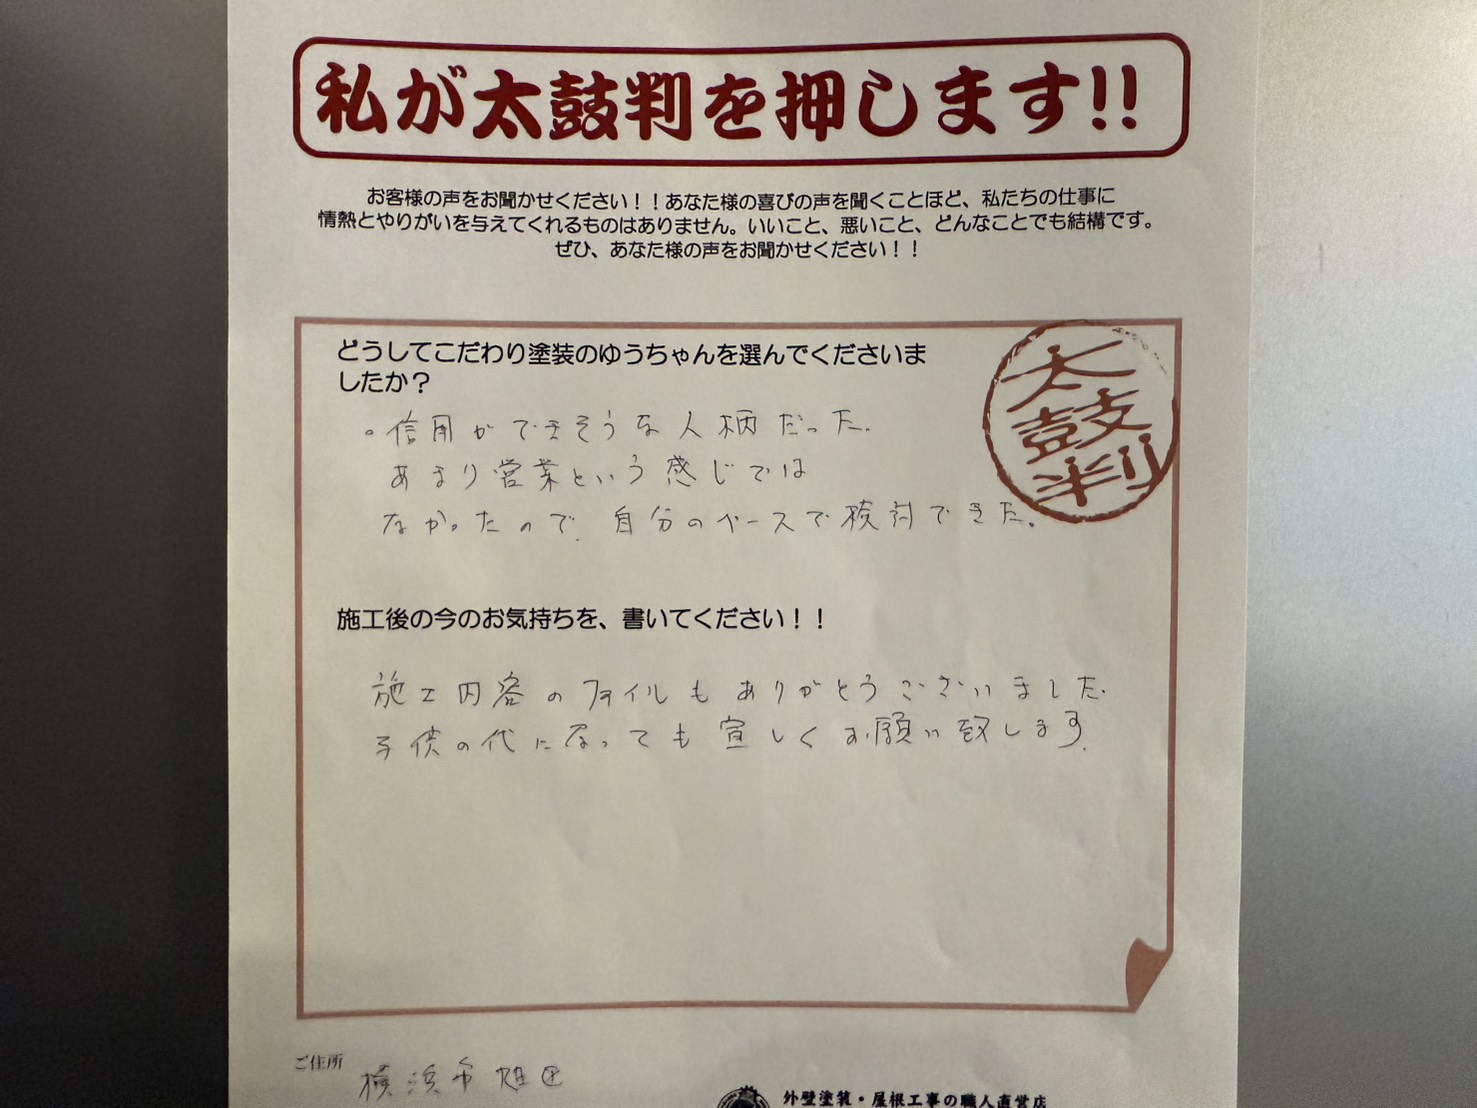 私が太鼓判を押します!!
お客様の声をお聞かせください！！あなた様の喜びの声を聞くことほど、私たちの仕事に
情熱とやりがいを与えてくれるものはありません。いいこと、悪いこと、どんなことでも結構です。
ぜひ、あなた様の声をお聞かせください！！
どうしてこだわり塗装のゆうちゃんを選んでくださいま
したか？
太鼓判
。信用ができそうな人柄だった.
あまり営業という感じでは
なかったので. 自分のペースで検討できた.
施工後の今のお気持ちを、書いてください！！
施工内容のファイルもありがとうございました.
子供の代になっても宜しくお願い致します.
ご住所 横浜市旭区
外壁塗装・屋根工事の職人直営店